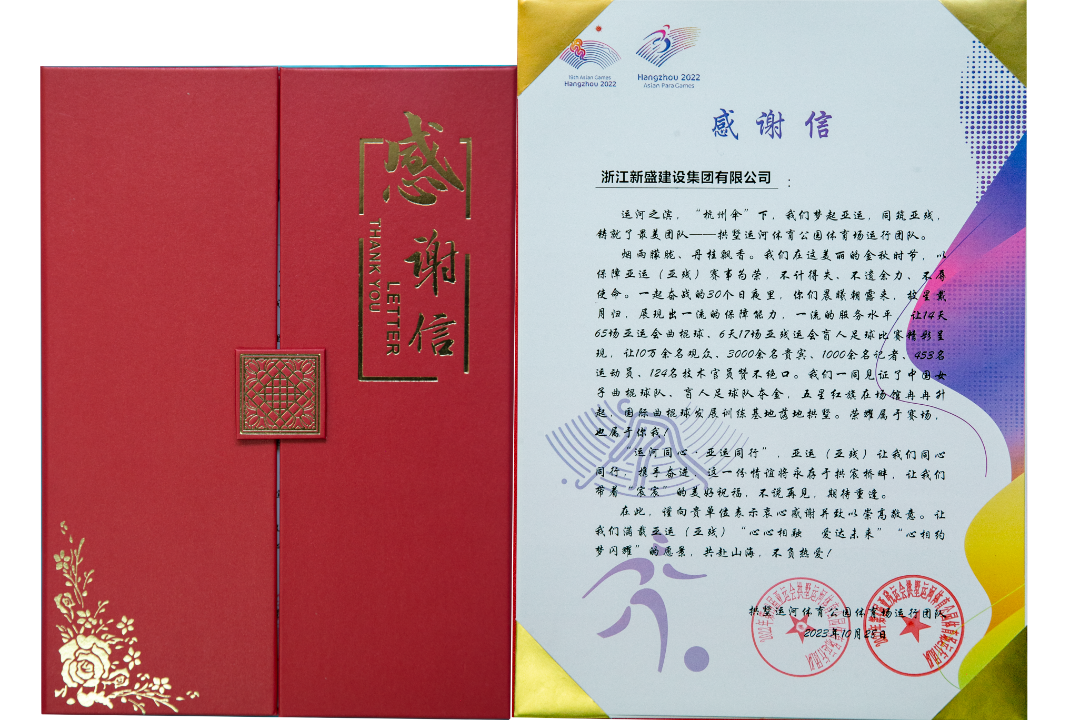 感
谢
信
THANK YOU
LETTER
19th Asian Games
Hangzhou 2022
Hangzhou 2022
Asian Para Games
感谢信
浙江新盛建设集团有限公司：
运河之滨，“杭州伞”下，我们梦起亚运，同筑亚残，
铸就了最美团队——拱墅运河体育公园体育场运行团队。
烟雨朦胧、丹桂飘香。我们在这美丽的金秋时节，以
保障亚运（亚残）赛事为荣，不计得失、不遗余力、不辱
使命。一起奋战的30个日夜里，你们晨曦朝露来，披星戴
月归，展现出一流的保障能力，一流的服务水平，让14天
65场亚运会曲棍球、6天17场亚残运会盲人足球比赛精彩呈
现，让10万余名观众、3000余名贵宾、1000余名记者、453名
运动员、124名技术官员赞不绝口。我们一同见证了中国女
子曲棍球队、盲人足球队夺金，五星红旗在场馆冉冉升
起，国际曲棍球发展训练基地落地拱墅。荣耀属于赛场，
也属于你我！
“运河同心·亚运同行”，亚运（亚残）让我们同心
同行，携手奋进，这一份情谊将永存于拱宸桥畔，让我们
带着“宸宸”的美好祝福，不说再见，期待重逢。
在此，谨向贵单位表示衷心感谢并致以崇高敬意。让
我们满载亚运（亚残）“心心相融 爱达未来”“心相约
梦闪耀”的愿景，共赴山海，不负热爱！
拱墅运河体育公园体育场运行团队
2023年10月28日